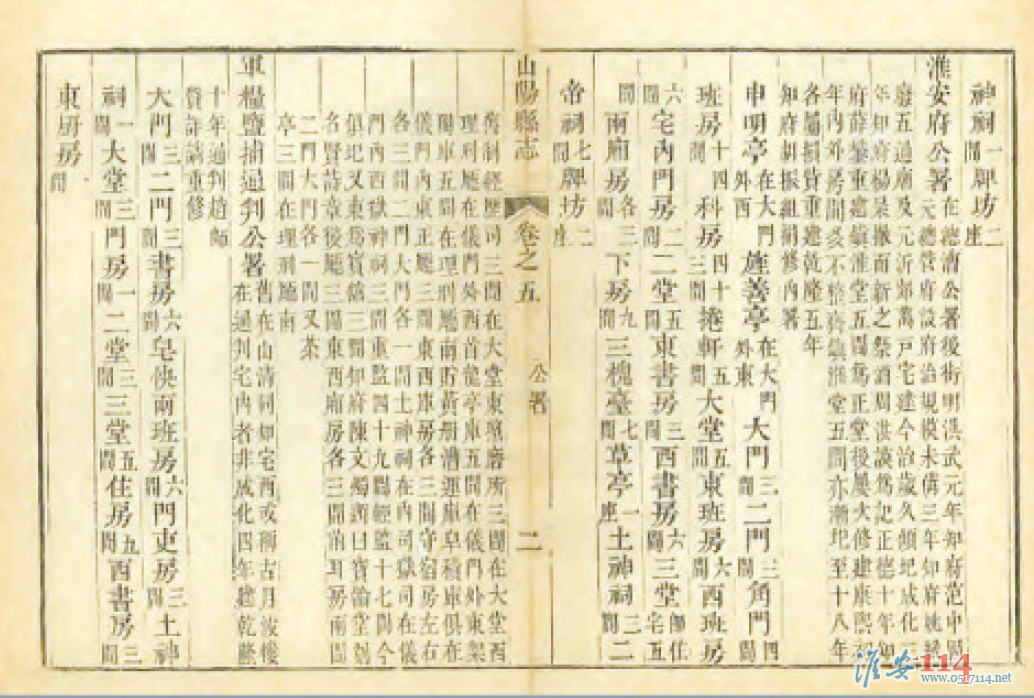 神祠一間牌坊二座
淮安府公署在總漕公署後街明洪武元年知府范中
元總管府設府治規模未備三年知府姚
廢五通廟及元沂郯萬戶宅建今治歲久傾圮成化
年知府楊杲撤而新之祭酒周洪謨為記正德十年知
府薛重建鎮淮堂五間為正堂後屢大修建康熙
年內外房間又不整齊鎮淮堂五間亦漸圮至十八年
各屬損貲重建乾隆五年
知府胡振組捐修內署
申明亭在大門外西旌善亭在大門外東大門三間二門三間角門四間
班房十間四科房四十間捲軒五間大堂五間東班房六間西班房
六間宅內門房二間二堂五間東書房三間西書房六間三堂
間兩廂房各三間下房九間三槐臺七間草亭一座土神祠三間二
帝祠七間牌坊二座
山陽縣志 卷之五 公署 二
舊制經歷司三間在大堂東照磨所三間在大堂西
理刑廳在儀門外西首龍亭庫五間在儀門外東架
閣庫五間在理刑廳南貯黃冊漕運庫皁積庫俱在
儀門內東正廳三間東西庫房各三間守宿房左右
各三間二門大門各一間土神祠在內司獄司在儀
門內西獄神祠三間重監四十九間輕監十七間今
俱圮又東為賓館三間知府陳文燭顏曰寶翰堂刻
名賢詩章後廳三間東西廂房各三間南耳房兩間
二門大門各一間又茶
亭三間在理刑廳南
軍糧鹽捕通判公署舊在山清祠知宅西或稱古月波樓
在通判宅內者非成化四年建乾隆
十年通判趙師
質詳請重修
大門三間二門三間書房六間皂快兩班房六間門吏房三間土神
祠一間大堂三間門房一間二堂三間三堂五間住房五間西書房三間
東廚房間
淮安114
www.0517114.net